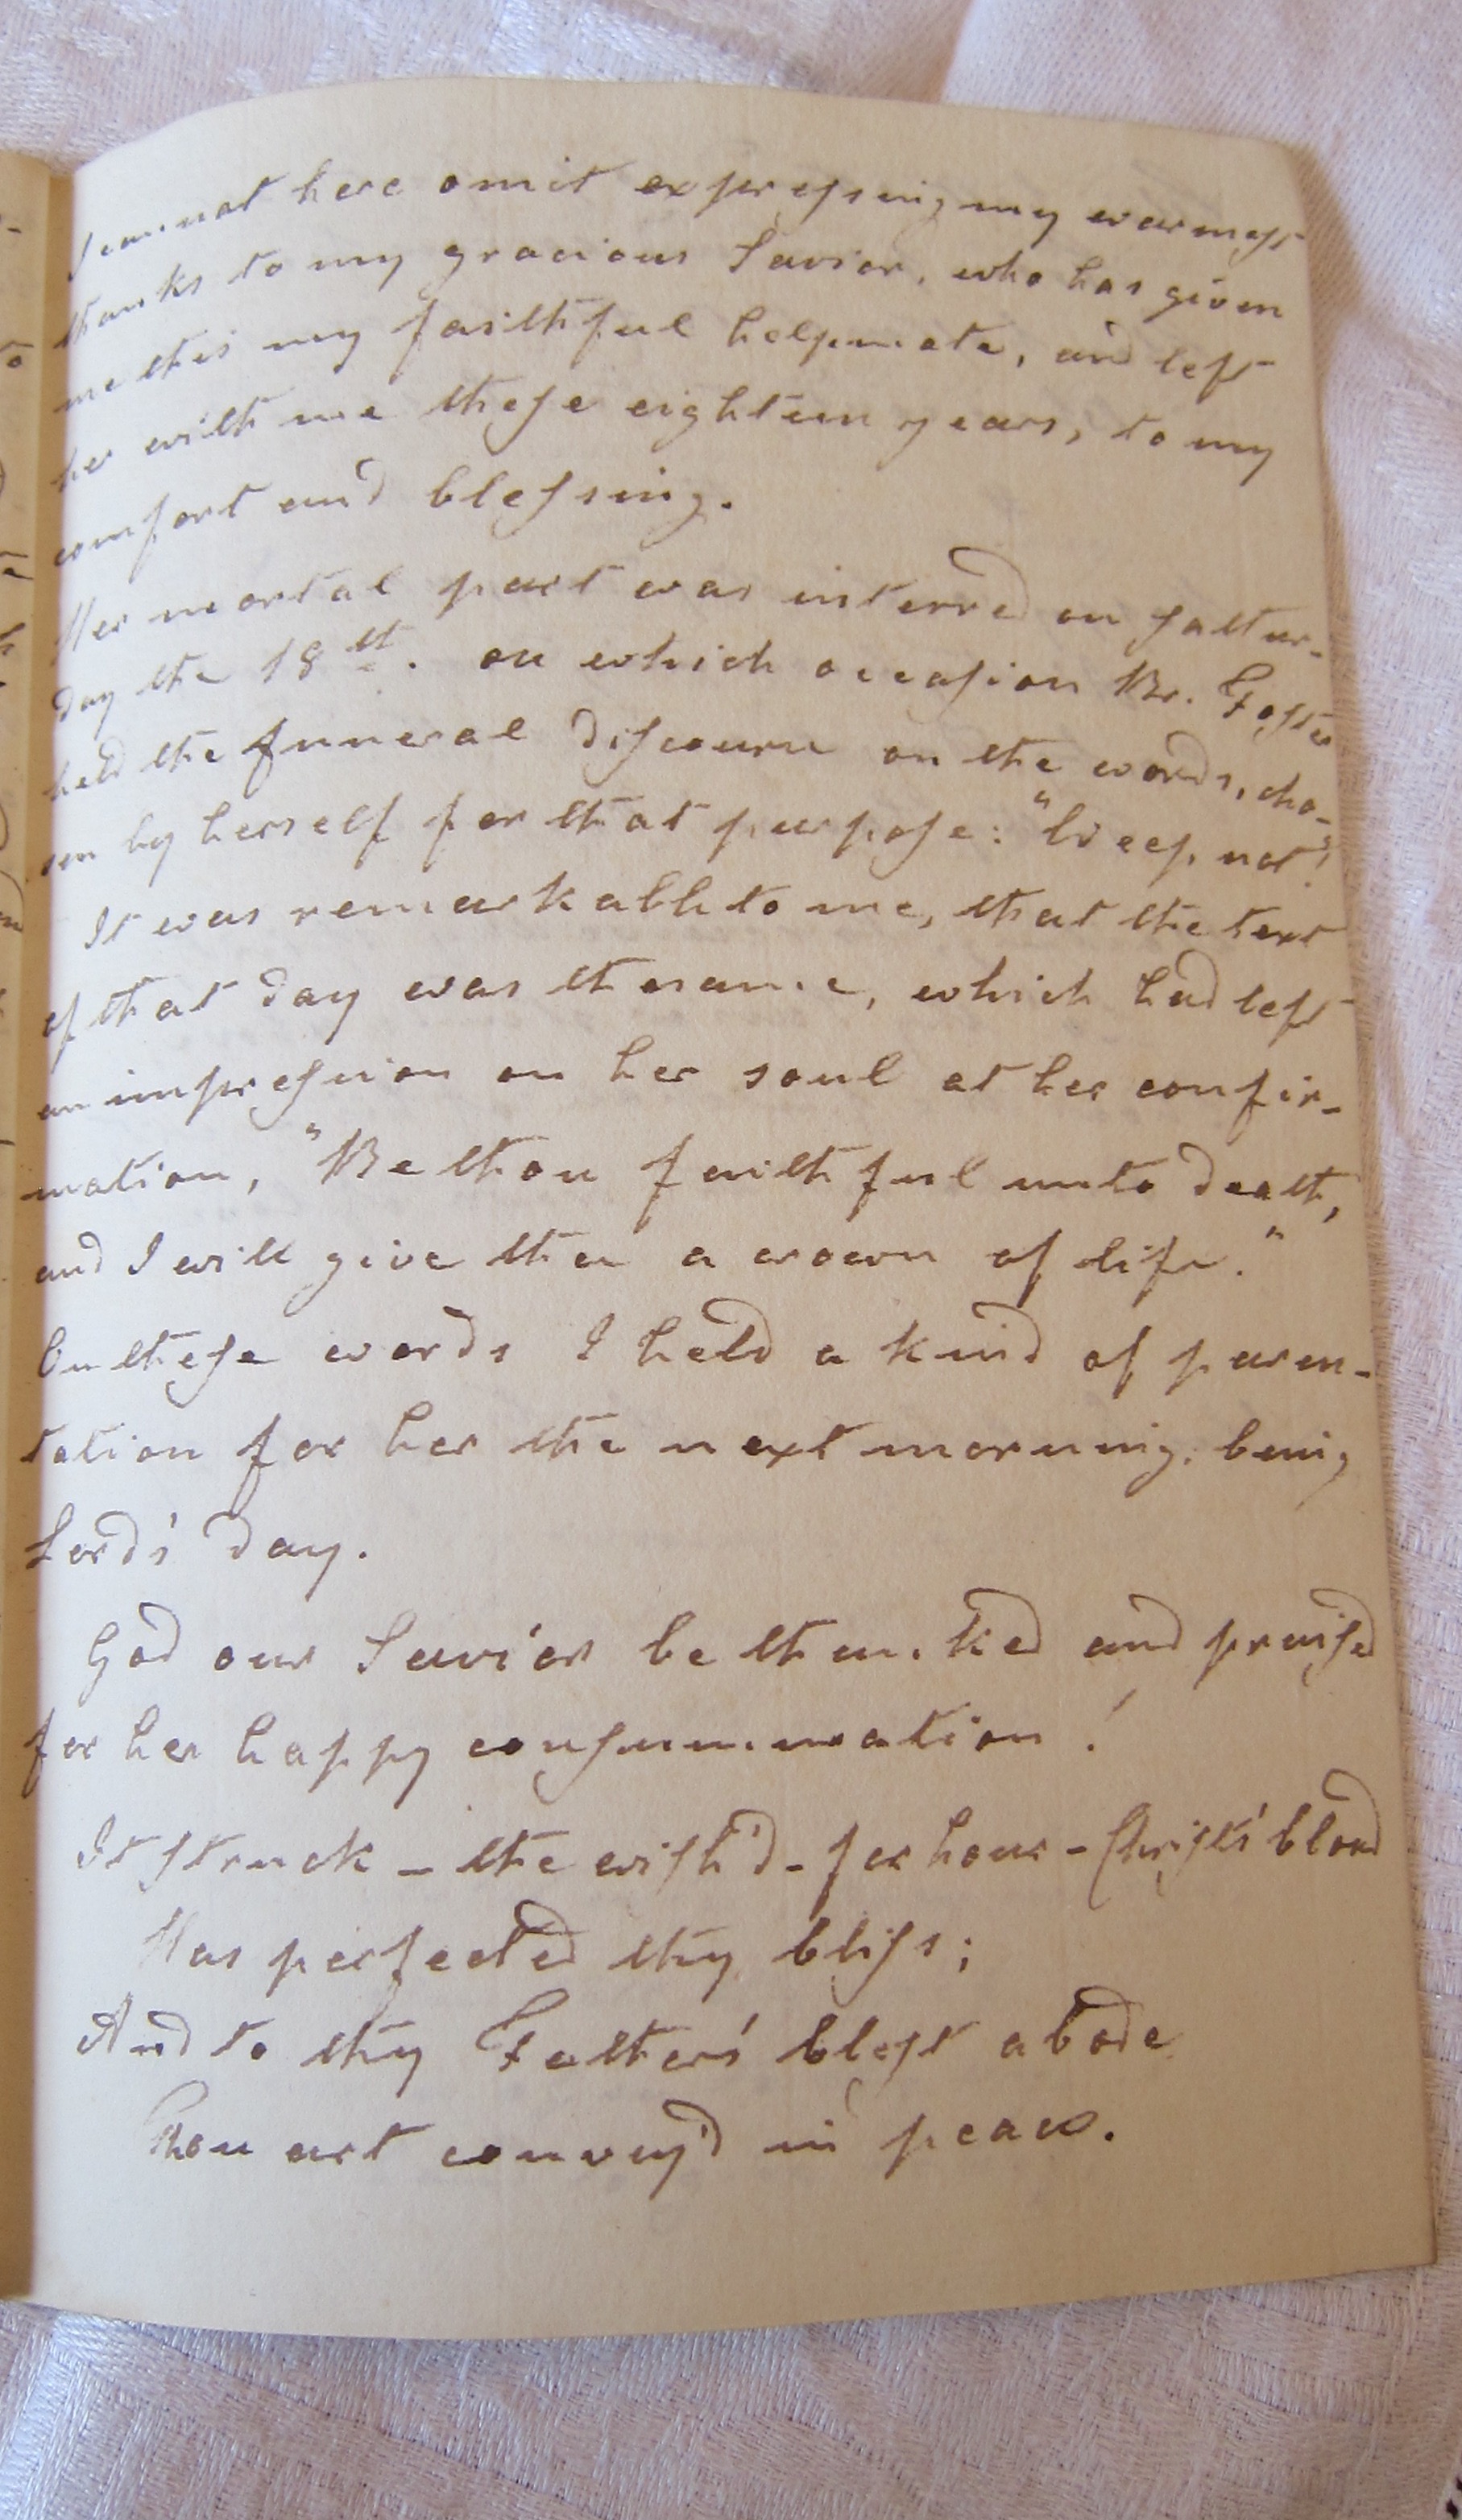 I cannot here omit expreſsing my warmeſt
thanks to my gracious Savior, who has given
me this my faithful helpmate, and left
her with me theſe eighteen years, to my
comfort and bleſsing.
Her mortal part was interred on ſatur-
day the 18th. on which occaſion Br. Foſter
held the funeral diſcourse on the words, cho-
sen by herself for that purpoſe: "Weep not!"
It was remarkable to me, that the text
of that day was the same, which had left
an impreſsion on her soul at her confir-
mation, "Be thou faithful unto death,
and I will give thee a crown of life."
On theſe words I held a kind of paren-
tation for her the next morning, being
Lord's day.
God our Savior be thanked and praiſed
for her happy conſummation!
It ſtruck – the wiſh'd-for hour – Chriſt's blood
Has perfected thy bliſs;
And to thy Father's bleſt abode
Thou art convey'd in peace.